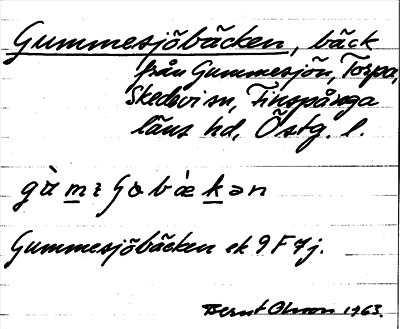 Gummesjöbäcken, bäck
från Gummesjön, Torpa,
Skedevi sn, Finspånga
läns hd, Östg. l.
Gummesjöbäcken ek 9 F 7 j.
Bernt Olsson 1963.